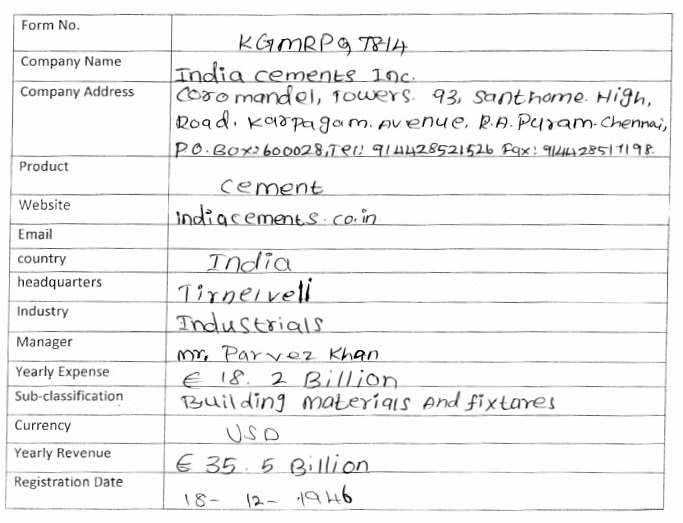 Form No. KGMRPQ7814
Company Name India cements Inc.
Company Address Coromandel, Towers. 93, Santhome. High,
Road. Karpagam. Avenue, R.A. Puram. Chennai,
P.O. Box: 600028, Tel: 914428521526 Fax: 914428517198.
Product cement
Website indiacements.co.in
Email
country India
headquarters Tirnelveli
Industry Industrials
Manager mr, Parvez Khan
Yearly Expense € 18. 2 Billion
Sub-classification Building materials And fixtares
Currency USD
Yearly Revenue € 35. 5 Billion
Registration Date 18- 12- 1946